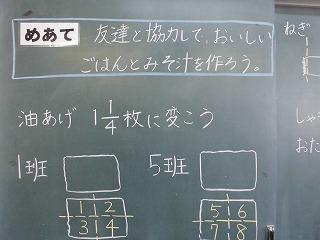 めあて 友達と協力して、おいしい
ごはんとみそ汁を作ろう。
油あげ 1 1/4 枚に変こう
1班 5班
1 2 5 6
3 4 7 8
ねぎ
しゃ
おた